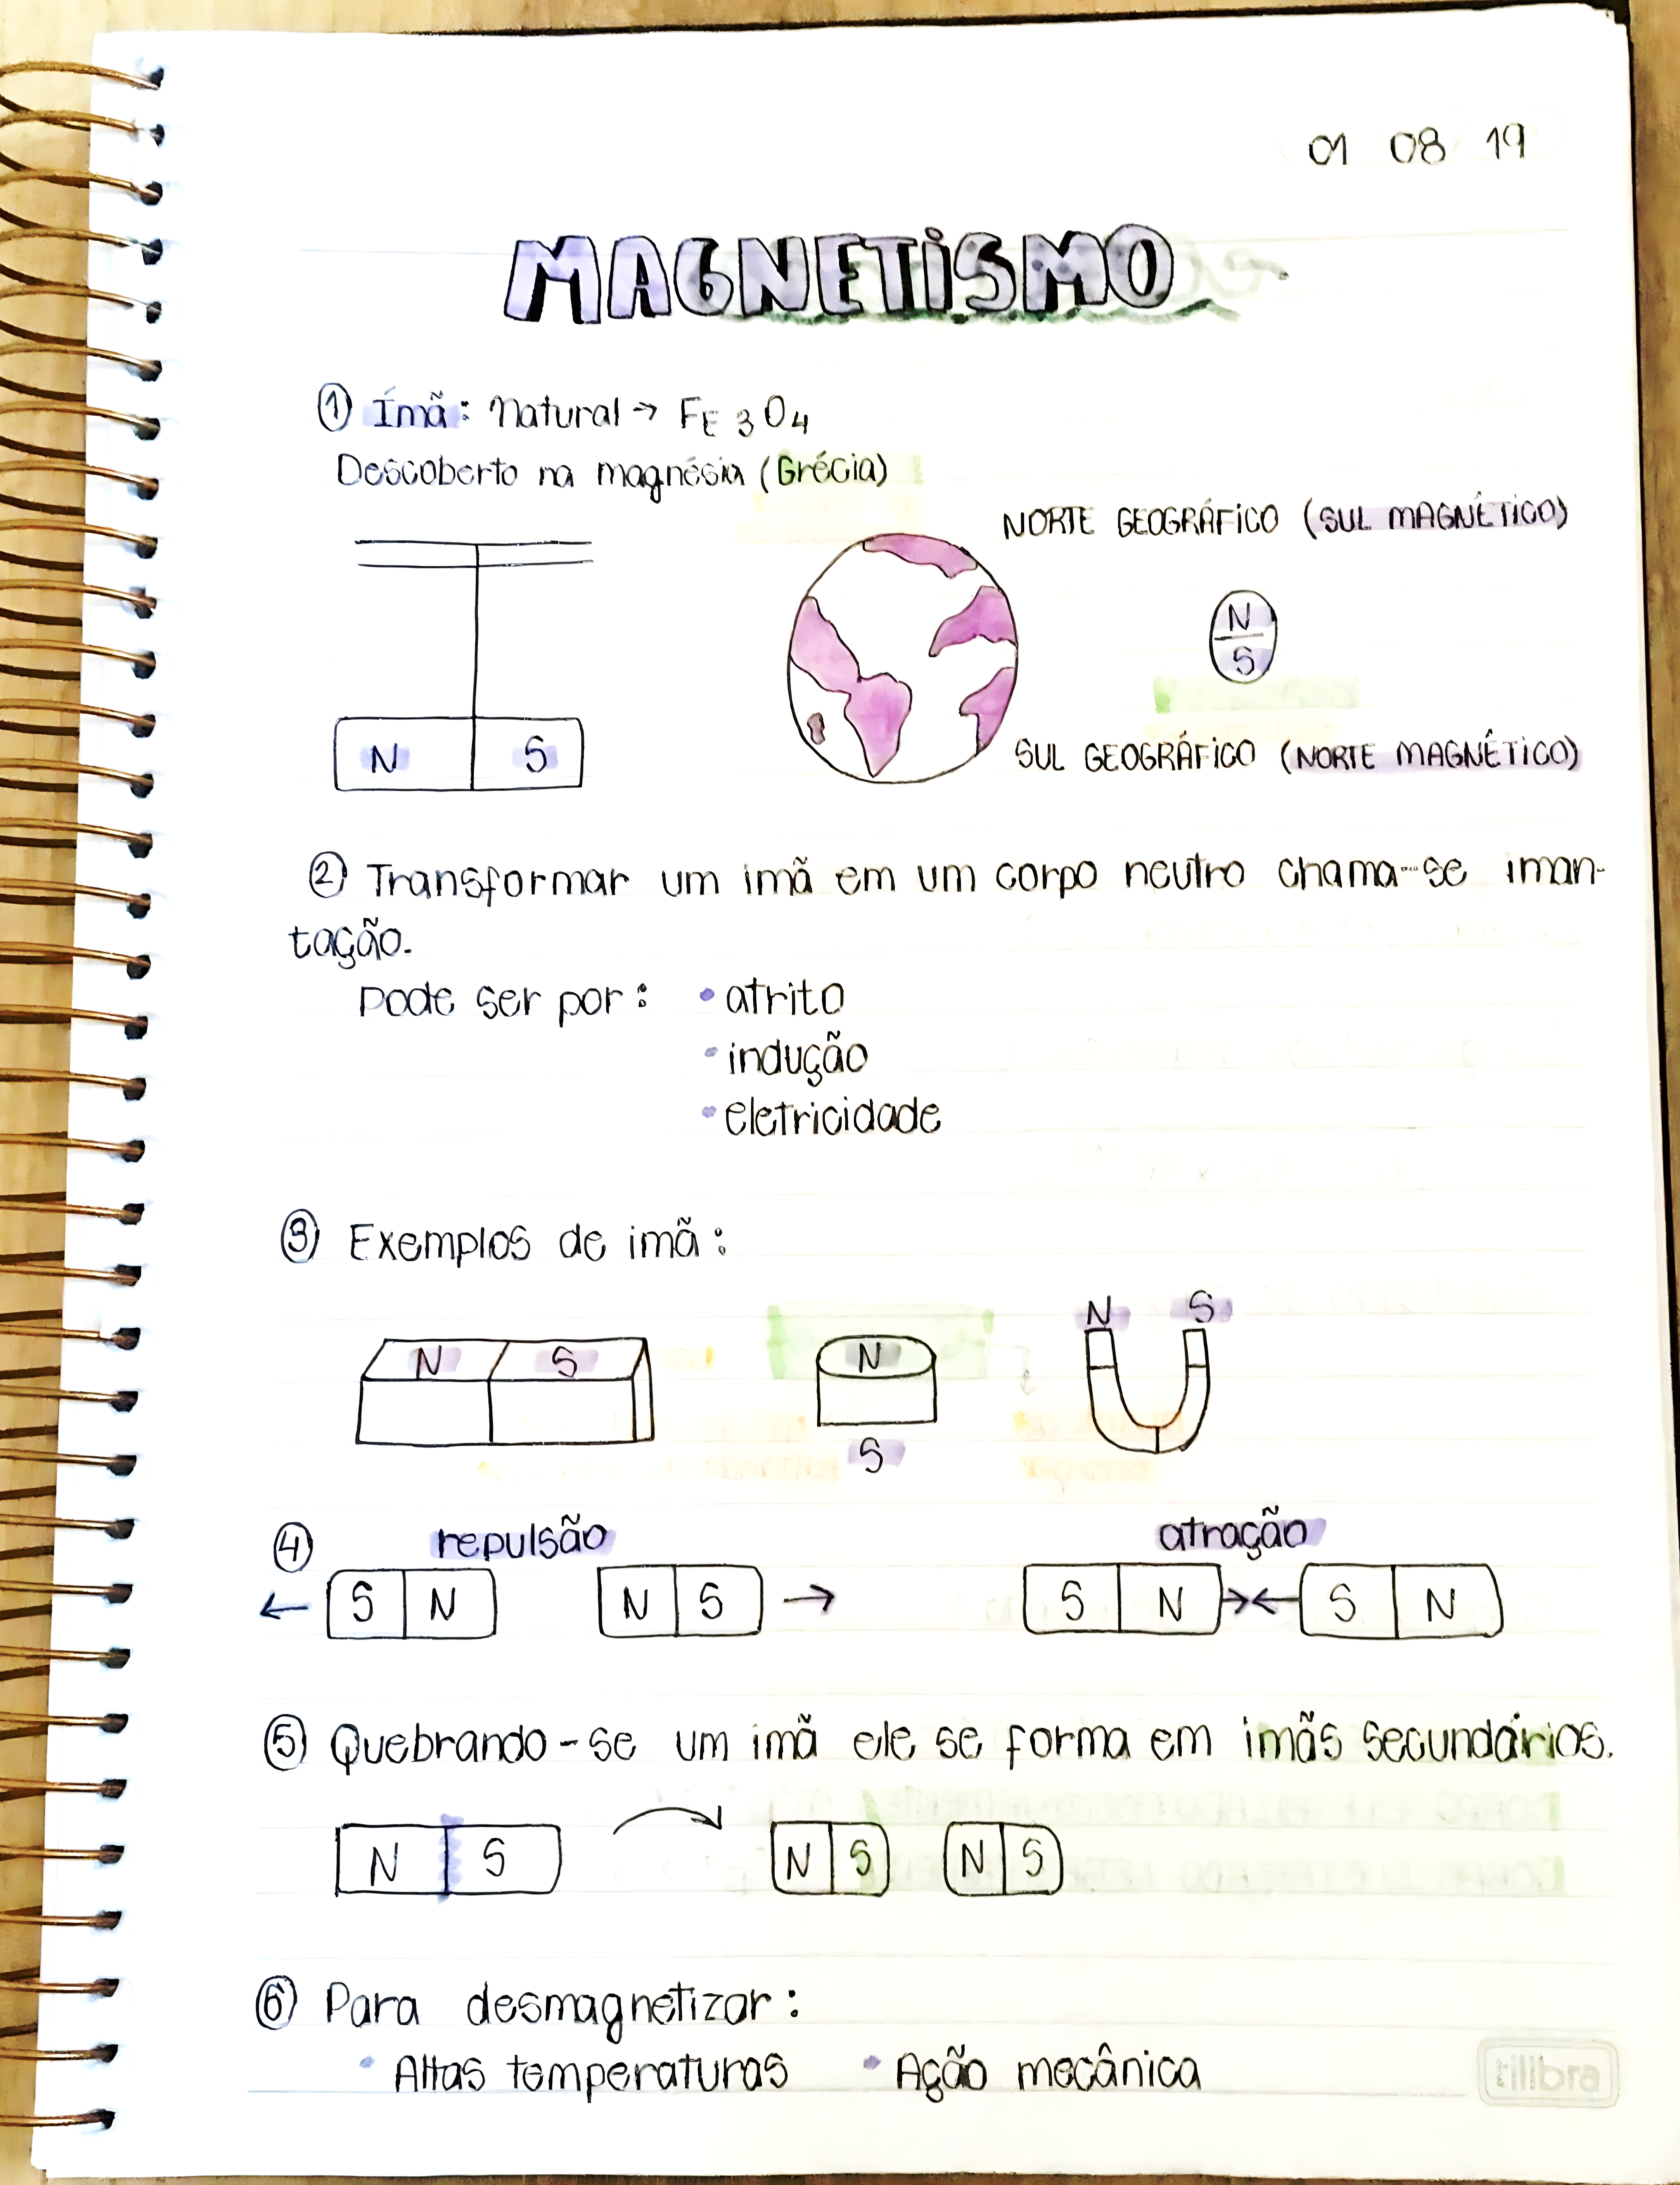 01 08 19
MAGNETISMO
① Ímã: Natural → FE 3O4
Descoberto na magnésia (Grécia)
NORTE GEOGRÁFICO (SUL MAGNÉTICO)
N
S
N S
SUL GEOGRÁFICO (NORTE MAGNÉTICO)
② Transformar um imã em um corpo neutro chama-se iman-
tação.
Pode ser por: • atrito
• indução
• eletricidade
③ Exemplos de imã:
N S
N
S
N S
④ repulsão atração
← S N N S → S N →← S N
⑤ Quebrando-se um imã ele se forma em imãs secundários.
N S N S N S
⑥ Para desmagnetizar:
• Altas temperaturas • Ação mecânica
tilibra